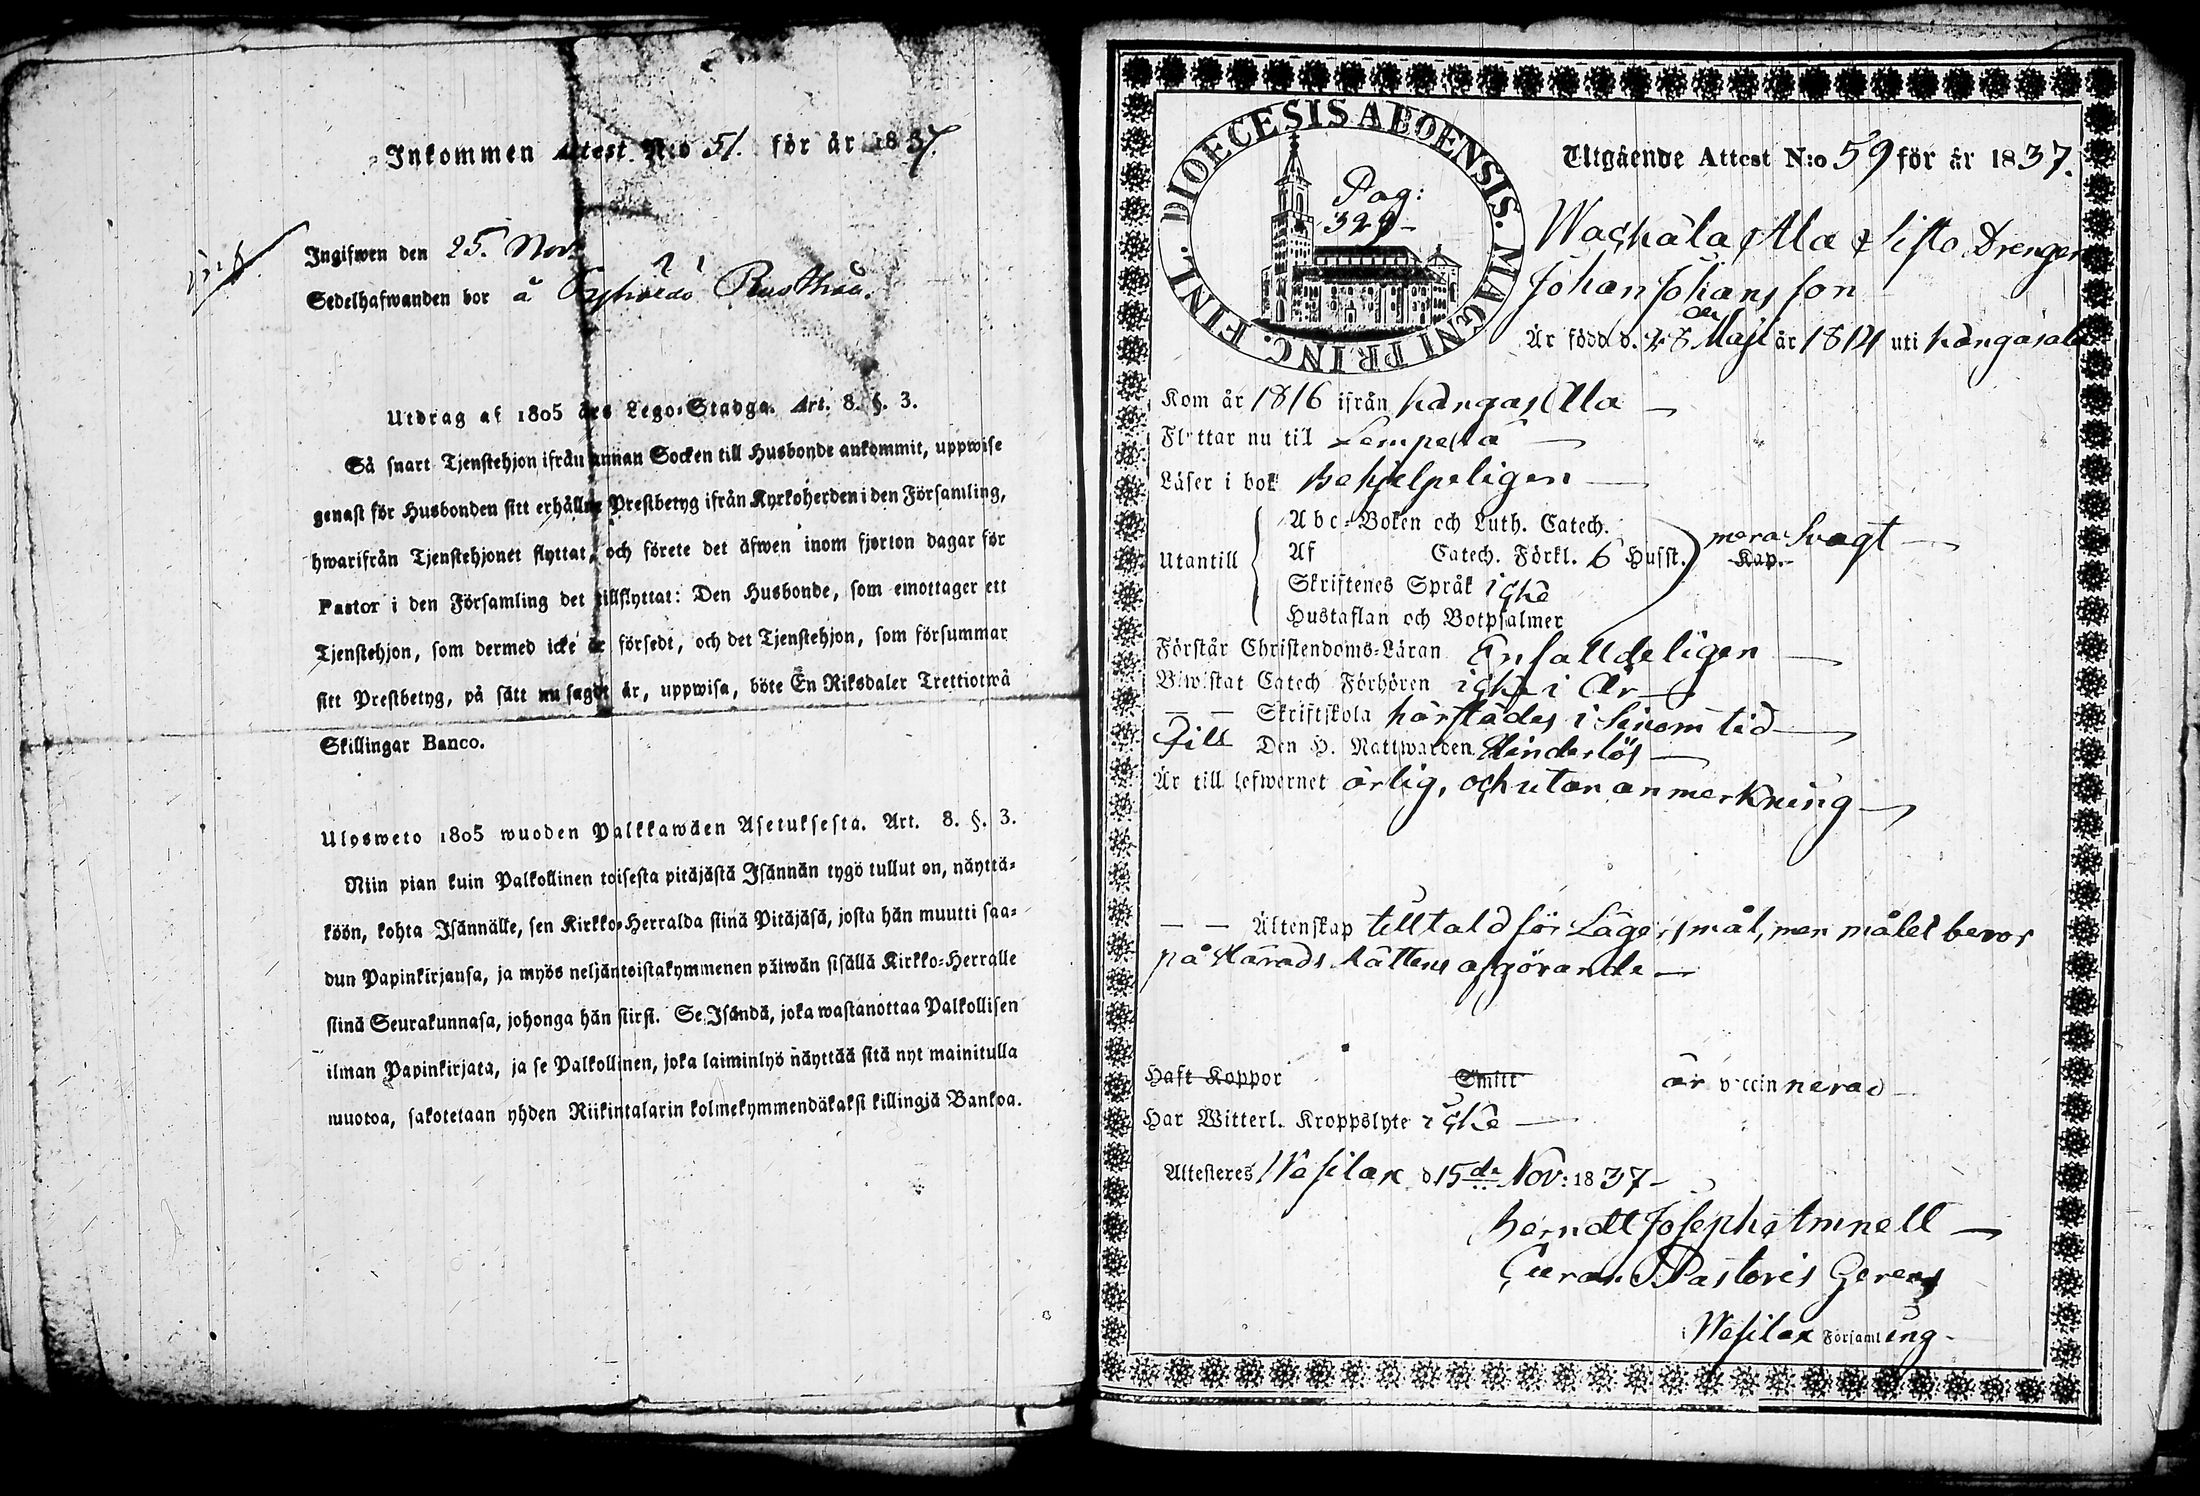 Inkommen Attest N:o 51. för år 1837.
Ingifwen den 25. Nov:
Sedelhafwanden bor å Rusthåll.
Utdrag af 1805 års Lego-Stadga. Art. 8. §. 3.
Så snart Tjenstehjon ifrån annan Socken till Husbonde ankommit, uppwise
genast för Husbonden sitt erhållne Prestbetyg ifrån Kyrkoherden i den Församling,
hwarifrån Tjenstehjonet flyttat, och förete det äfwen inom fjorton dagar för
Pastor i den Församling det tillflyttat: Den Husbonde, som emottager ett
Tjenstehjon, som dermed icke är försedt, och det Tjenstehjon, som försummar
sitt Prestbetyg, på sätt nu sagdt är, uppwisa, böte En Riksdaler Trettiotwå
Skillingar Banco.
Ulosweto 1805 wuoden Palkkawäen Asetuksesta. Art. 8. §. 3.
Niin pian kuin Palkollinen toisesta pitäjästä Isännän tygö tullut on, näyttä-
köön, kohta Isännälle, sen Kirkko-Herralda siinä Pitäjäsä, josta hän muutti saa-
dun Papinkirjansa, ja myös neljäntoistakymmenen päiwän sisällä Kirkko-Herralle
siinä Seurakunnasa, johonga hän siirsi. Se Isändä, joka wastanottaa Palkollisen
ilman Papinkirjata, ja se Palkollinen, joka laiminlyö näyttää sitä nyt mainitulla
muotoa, sakotetaan yhden Riikintalarin kolmekymmendäkaksi killingiä Bankoa.
DIOECESIS ABOENSIS. MAGNI PRINC. FINL.
Pag:
329-
Utgående Attest N:o 59 för år 1837.
Wackala Ala Sifto Drengen
Johan Johansson
Är född d. 28 de Maji år 1814 uti Kangasala
Kom år 1816 ifrån Kangasalla
Flyttar nu til Lempelä
Läser i bok behjelpeligen
Utantill
Abc-Boken och Luth. Catech.
Af Catech. Förkl. 6 Hufst. Kap. mera Svagt
Skriftenes Språk icke
Hustaflan och Botpsalmer
Förstår Christendoms-Läran Enfalldeligen
Biwistat Catech Förhören icke i År
— — Skriftskola härstädes i Sinom tid
Till Den H. Nattwarden Hinderlös
Är till lefwernet ärlig, och utan anmerkning
— — Äktenskap tilltald för Lägersmål, men målet beror
på Härads Rättens afgörande
Haft Koppor Smitt är vaccinnerad
Har Witterl. Kroppslyte icke
Attesteres Wesilax d. 15de Nov: 1837-
Berndt Joseph Amnell
Curam Pastoris Gerens
i Wesilax Församling-